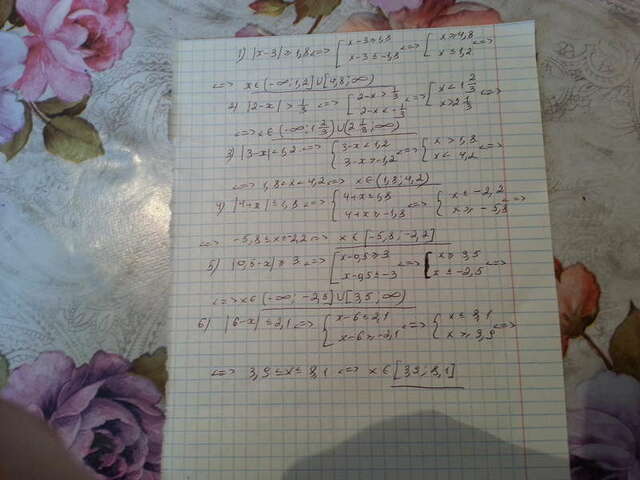 1) |x-3| ≥ 1,8 <=> [ x-3 ≥ 1,8 ; x-3 ≤ -1,8 <=> [ x ≥ 4,8 ; x ≤ 1,2 <=>
<=> x ∈ (-∞; 1,2] ∪ [4,8; ∞)
2) |2-x| > 1/3 <=> [ 2-x > 1/3 ; 2-x < -1/3 <=> [ x < 1 2/3 ; x > 2 1/3 <=>
<=> x ∈ (-∞; 1 2/3) ∪ (2 1/3; ∞)
3) |3-x| < 1,2 <=> { 3-x < 1,2 ; 3-x > -1,2 <=> { x > 1,8 ; x < 4,2 <=>
<=> 1,8 < x < 4,2 <=> x ∈ (1,8; 4,2)
4) |4+x| ≤ 1,8 <=> { 4+x ≤ 1,8 ; 4+x ≥ -1,8 <=> { x ≤ -2,2 ; x ≥ -5,8 <=>
<=> -5,8 ≤ x ≤ -2,2 <=> x ∈ [-5,8; -2,2]
5) |0,5-x| ≥ 3 <=> [ x-0,5 ≥ 3 ; x-0,5 ≤ -3 <=> [ x ≥ 3,5 ; x ≤ -2,5 <=>
<=> x ∈ (-∞; -2,5] ∪ [3,5; ∞)
6) |6-x| ≤ 2,1 <=> { x-6 ≤ 2,1 ; x-6 ≥ -2,1 <=> { x ≤ 8,1 ; x ≥ 3,9 <=>
<=> 3,9 ≤ x ≤ 8,1 <=> x ∈ [3,9; 8,1]